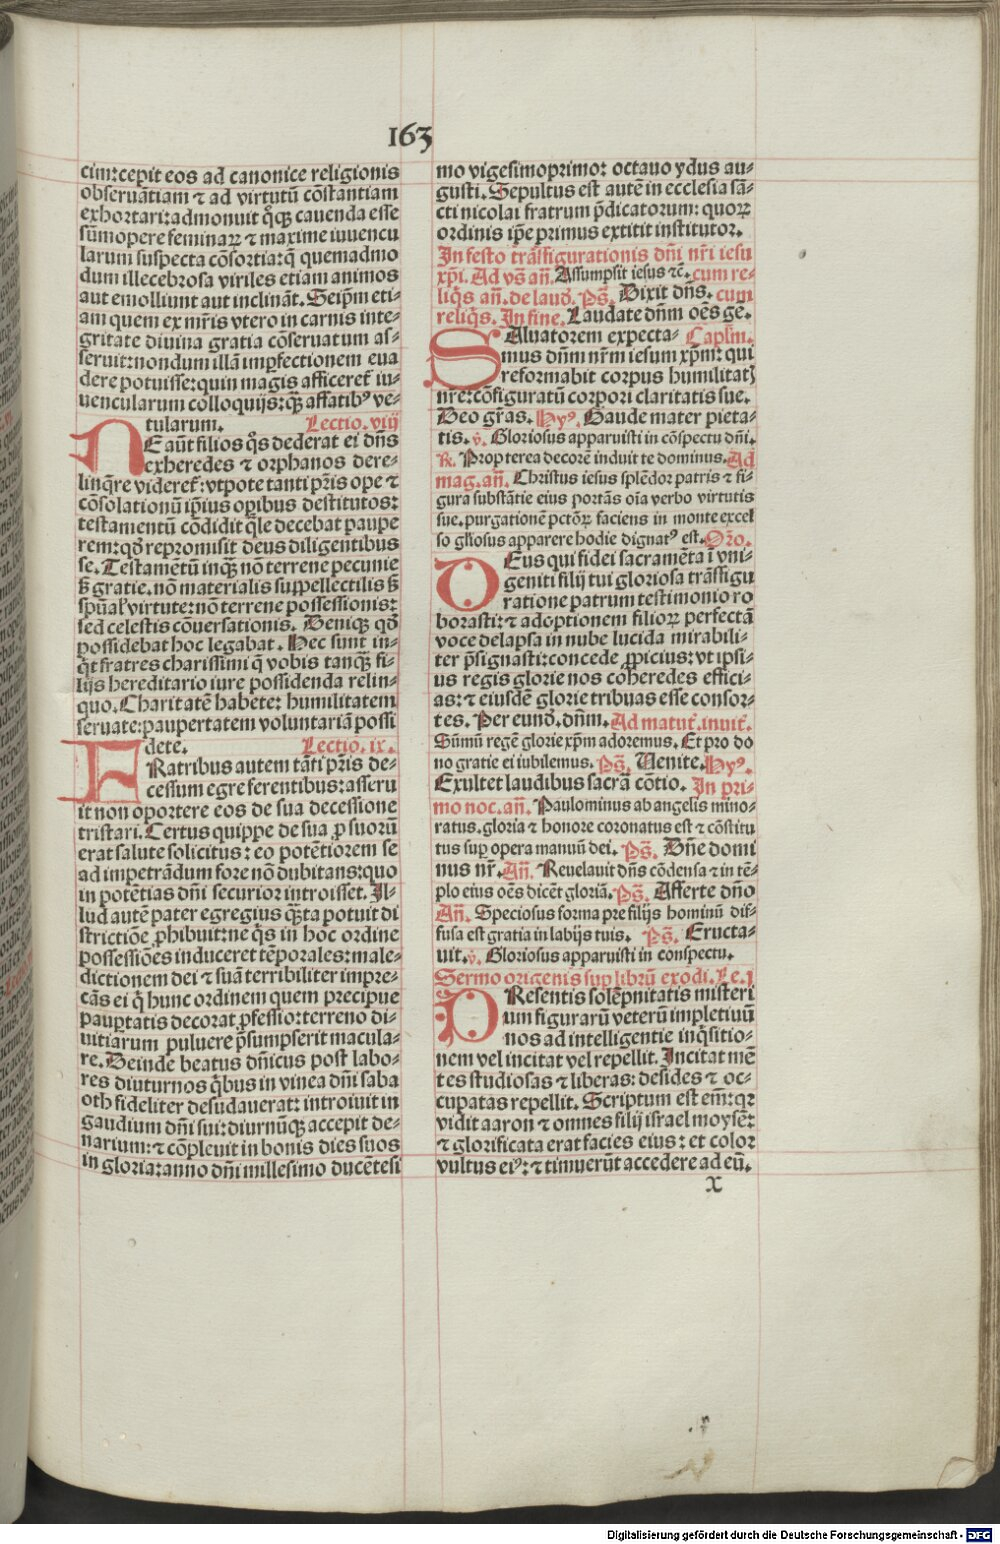 163
cim: cepit eos ad canonice religionis
obseruātiam ⁊ ad virtutū cōstantiam
exhortari: admonuit q̄ꝫ cauenda esse
sūmopere feminaꝝ ⁊ maxime iuuencu
larum suspecta cōsortia: q̄ quemadmo
dum illecebrosa viriles etiam animos
aut emolliunt aut inclināt. Seip̄m eti-
am quem ex mr̄is vtero in carnis inte-
gritate diuina gratia cōseruatum as-
seruit: nondum illā imꝑfectionem eua
dere potuisse: quin magis afficeret̄ iu-
uencularum colloquijs: q̄ꝫ affatibꝰ ve-
tularum. Lectio. viij
NE aūt filios q̄s dederat ei dn̄s
exheredes ⁊ orphanos dere-
linq̄re videret̄: vtpote tanti pr̄is ope ⁊
cōsolationū ip̄ius opibus destitutos:
testamentū cōdidit q̄le decebat paupe
rem: qđ repromisit deus diligentibus
se. Testamētū inq̄ꝫ nō terrene pecunie
ꝫ gratie. nō materialis suppellectilis ꝫ
spūal̄ virtute: nō terrene possessionis:
sed celestis cōuersationis. Deniqꝫ qđ
possidebat hoc legabat. Hec sunt in-
q̄t fratres charissimi q̄ vobis tanq̄ꝫ fi-
lijs hereditario iure possidenda relin-
quo. Charitatē habete: humilitatem
seruate: paupertatem voluntariā possi
dete. Lectio. ix.
FRatribus autem tāti pr̄is de-
cessium egre ferentibus: asseru
it non oportere eos de sua decessione
tristari. Certus quippe de sua ꝓ suorū
erat salute solicitus: eo potētiorem se
ad impetrādum fore nō dubitans: quo
in potētias dn̄i securior introisset. Il-
lud autē pater egregius q̄ꝫta potuit di
strictiōe ꝓhibuit: ne q̄s in hoc ordine
possessiōes induceret tēporales: male-
dictionem dei ⁊ suā terribiliter impre-
cās ei q̄ hunc ordinem quem precipue
pauꝑtatis decorat ꝓfessio: terreno di-
uitiarum puluere p̄sumpserit macula-
re. Deinde beatus dn̄icus post labo-
res diuturnos q̄bus in vinea dn̄i saba
oth fideliter desudauerat: introiuit in
gaudium dn̄i sui: diurnūqꝫ accepit de-
narium: ⁊ cōpleuit in bonis dies suos
in gloria: anno dn̄i millesimo ducētesi
mo vigesimoprimo: octauo ydus au-
gusti. Sepultus est autē in ecclesia sā-
cti nicolai fratrum p̄dicatorum: quoꝝ
ordinis ip̄e primus extitit institutor.
In festo trāsfigurationis dn̄i nr̄i iesu
xp̄i. Ad vs̄ an̄. Assumpsit iesus ⁊c̄. cum re-
liq̄s an̄. de laud. Ps̄. Dixit dn̄s. cum
reliq̄s. In fine. Laudate dn̄m oēs gē.
SAluatorem expecta- Caplm̄.
mus dn̄m nr̄m iesum xp̄m: qui
reformabit corpus humilitatꝭ
nr̄e: cōfiguratū corpori claritatis sue.
Deo gr̄as. Hyꝰ. Gaude mater pieta-
tis. v̄. Gloriosus apparuisti in cōspectu dn̄i.
R̄. Propterea decorē induit te dominus. Ad
mag. an̄. Christus iesus splēdor patris ⁊ fi-
gura substātie eius portās oīa verbo virtutis
sue. purgationē pctōꝝ faciens in monte excel
so gl̄iosus apparere hodie dignatꝰ est. Or̄o.
DEus qui fidei sacramēta ī vni-
geniti filij tui gloriosa trāsfigu
ratione patrum testimonio ro
borasti: ⁊ adoptionem filioꝝ perfectā
voce delapsa in nube lucida mirabili-
ter p̄signasti: concede ꝓpicius: vt ipsi-
us regis glorie nos coheredes effici-
as: ⁊ eiusdē glorie tribuas esse consor-
tes. Per eund. dn̄m. Ad matut̄. inuit̄.
Sūmū regē glorie xp̄m adoremus. Et pro do
no gratie ei iubilemus. Ps̄. Uenite. Hyꝰ.
Exultet laudibus sacrā cōtio. In pri-
mo noc. an̄. Paulominus ab angelis mino-
ratus. gloria ⁊ honore coronatus est ⁊ cōstitu
tus suꝑ opera manuū dei. Ps̄. Dn̄e domi
nus nr̄. An̄. Reuelauit dn̄s cōdensa ⁊ in tē-
plo eius oēs dicēt gloriā. Ps̄. Afferte dn̄o
An̄. Speciosus forma pre filijs hominū dif-
fusa est gratia in labijs tuis. Ps̄. Eructa-
uit. v̄. Gloriosus apparuisti in conspectu.
Sermo origenis suꝑ librū exodi. Le. j
PResentis solēpnitatis misteri
um figurarū veterū impletiuū
nos ad intelligentie inq̄sitio-
nem vel incitat vel repellit. Incitat mē
tes studiosas ⁊ liberas: desides ⁊ oc-
cupatas repellit. Scriptum est em̄: qꝛ
vidit aaron ⁊ omnes filij israel moysē:
⁊ glorificata erat facies eius: et color
vultus eiꝰ: ⁊ timuerūt accedere ad eū.
x
Digitalisierung gefördert durch die Deutsche Forschungsgemeinschaft - DFG